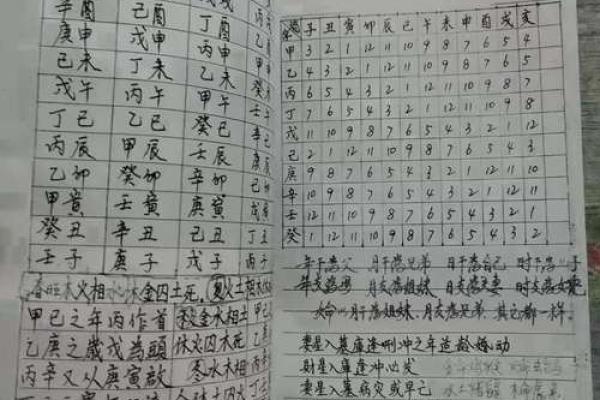 辛酉 己酉 丁酉 乙酉
庚申 戊申 丙申
己未 丁未 乙未 癸未
戊午 丙午 甲午 壬午
丁巳 乙巳 癸巳 辛巳
丙辰 甲辰 壬辰 庚辰
乙卯 癸卯 辛卯 己卯
甲寅 壬寅 庚寅 戊寅
癸丑 辛丑 己丑 丁丑
壬子 庚子 戊子 丙子
春旺木火相水休金囚土死,夏火土相木休
甲己之年丙作首 秋金水相土
乙庚之歲戊為頭 休火囚木死
丙辛又从庚寅啟 冬水木相
子 丑 寅 卯 辰 巳 午 未 申 酉 戌 亥
甲 3 2 1 12 11 10 9 8 7 6 5 4
乙 4 3 2 1 12 11 10 9 8 7 6 5
丙 6 5 4 3 2 1 12 11 10 9 8 7
丁 7 6 5 4 3 2 1 12 11 10 9 8
戊 11 10 9 8 7 6 5 4 3 2 1 12
己 2 1 12 11 10 9 8 7 6 5 4 3
庚 9 8 7 6 5 4 3 2 1 12 11 10
辛 10 9 8 7 6 5 4 3 2 1 12 11
壬 12 11 10 9 8 7 6 5 4 3 2 1
癸 1 12 11 10 9 8 7 6 5 4 3 2
年干為父 月干為兄弟 日干為自己 时干為子
年支為母 月支為姐妹 日支為夫妻 时支為女兒
女命 月干為姐妹,月支為兄弟 其它都一样。
妻星入墓庫逢刑冲之年造龄婚动
財星入墓庫逢冲必发
妻星入墓病灾或早亡